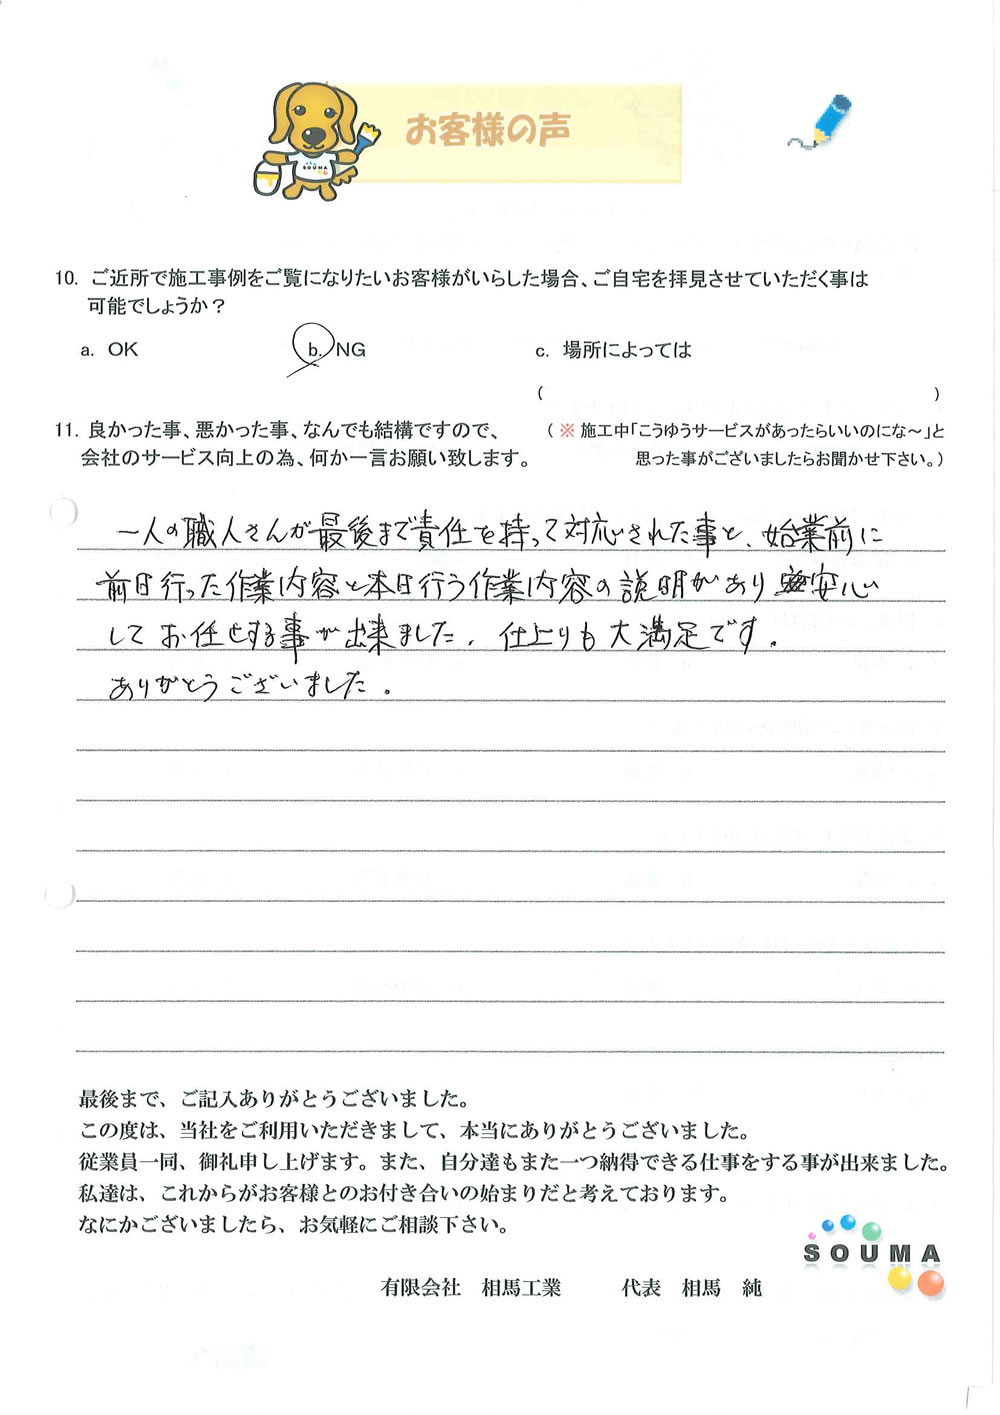 お客様の声
SOUMA
10. ご近所で施工事例をご覧になりたいお客様がいらした場合、ご自宅を拝見させていただく事は
可能でしょうか？
a. OK b. NG c. 場所によっては
( )
11. 良かった事、悪かった事、なんでも結構ですので、 (※ 施工中「こうゆうサービスがあったらいいのにな～」と
会社のサービス向上の為、何か一言お願い致します。 思った事がございましたらお聞かせ下さい。)
一人の職人さんが最後まで責任を持って対応された事と、始業前に
前日行った作業内容と本日行う作業内容の説明があり安心
してお任せする事が出来ました。仕上りも大満足です。
ありがとうございました。
最後まで、ご記入ありがとうございました。
この度は、当社をご利用いただきまして、本当にありがとうございました。
従業員一同、御礼申し上げます。また、自分達もまた一つ納得できる仕事をする事が出来ました。
私達は、これからがお客様とのお付き合いの始まりだと考えております。
なにかございましたら、お気軽にご相談下さい。
SOUMA
有限会社 相馬工業 代表 相馬 純